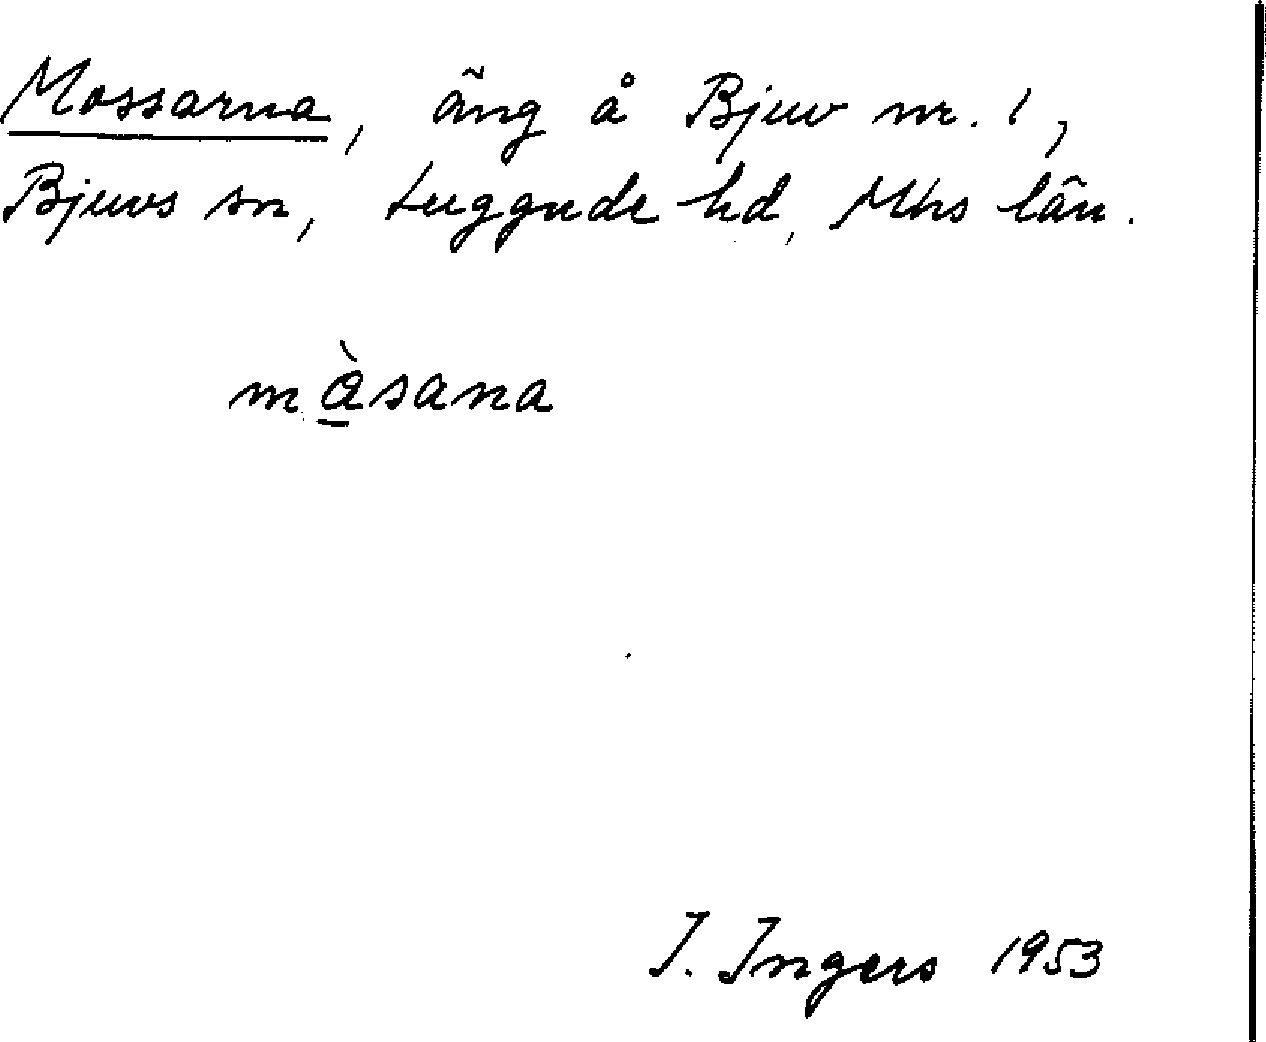 Mossarna, äng å Bjuv nr. 1,
Bjuvs sn, Luggude hd, Mhs län.
måsana
I. Ingers 1953